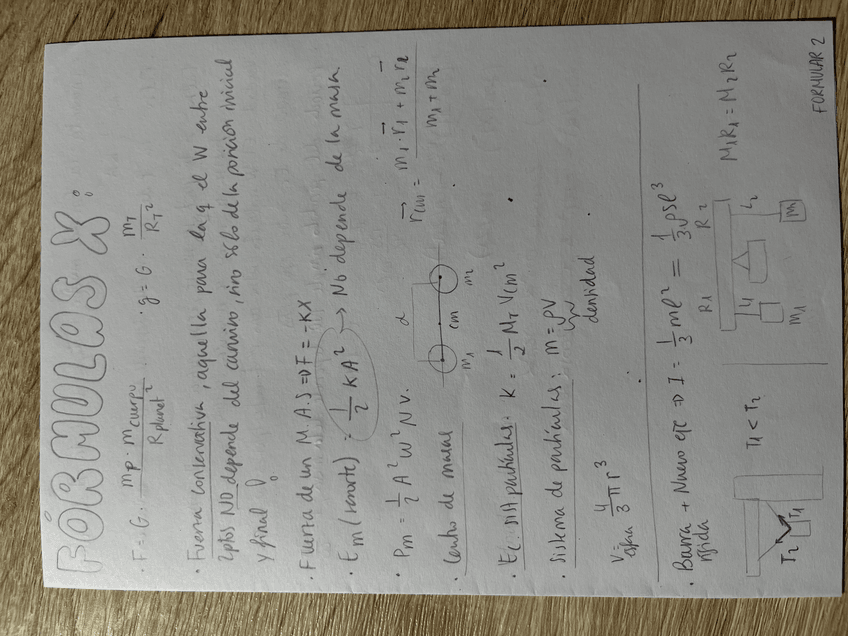 FÓRMULAS X:
· F = G · mp · mcuerpo / Rplanet² · g = G · mT / RT²
· Fuerza conservativa, aquella para la q el W entre
2ptos NO depende del camino, sino sólo de la posición inicial
y final
· Fuerza de un M.A.S => F = -KX
· Em (resorte) : 1/2 KA² → No depende de la masa.
· Pm = 1/2 A² W² N V.
· Centro de masas
d
m1 cm m2
rcm = m1 · r1 + m2 r2 / m1 + m2
· Ec. sist partículas: K = 1/2 MT Vcm²
· Sistema de partículas: m = ρV
densidad
Vesfera = 4/3 π r³
· Barra + Nuevo eje => I = 1/3 ml² = 1/3 ρSl³
rígida
T2 T1
T1 < T2
R1 R2
L1 L2
m1 m2
M1R1 = M2R2
FORMULAR 2